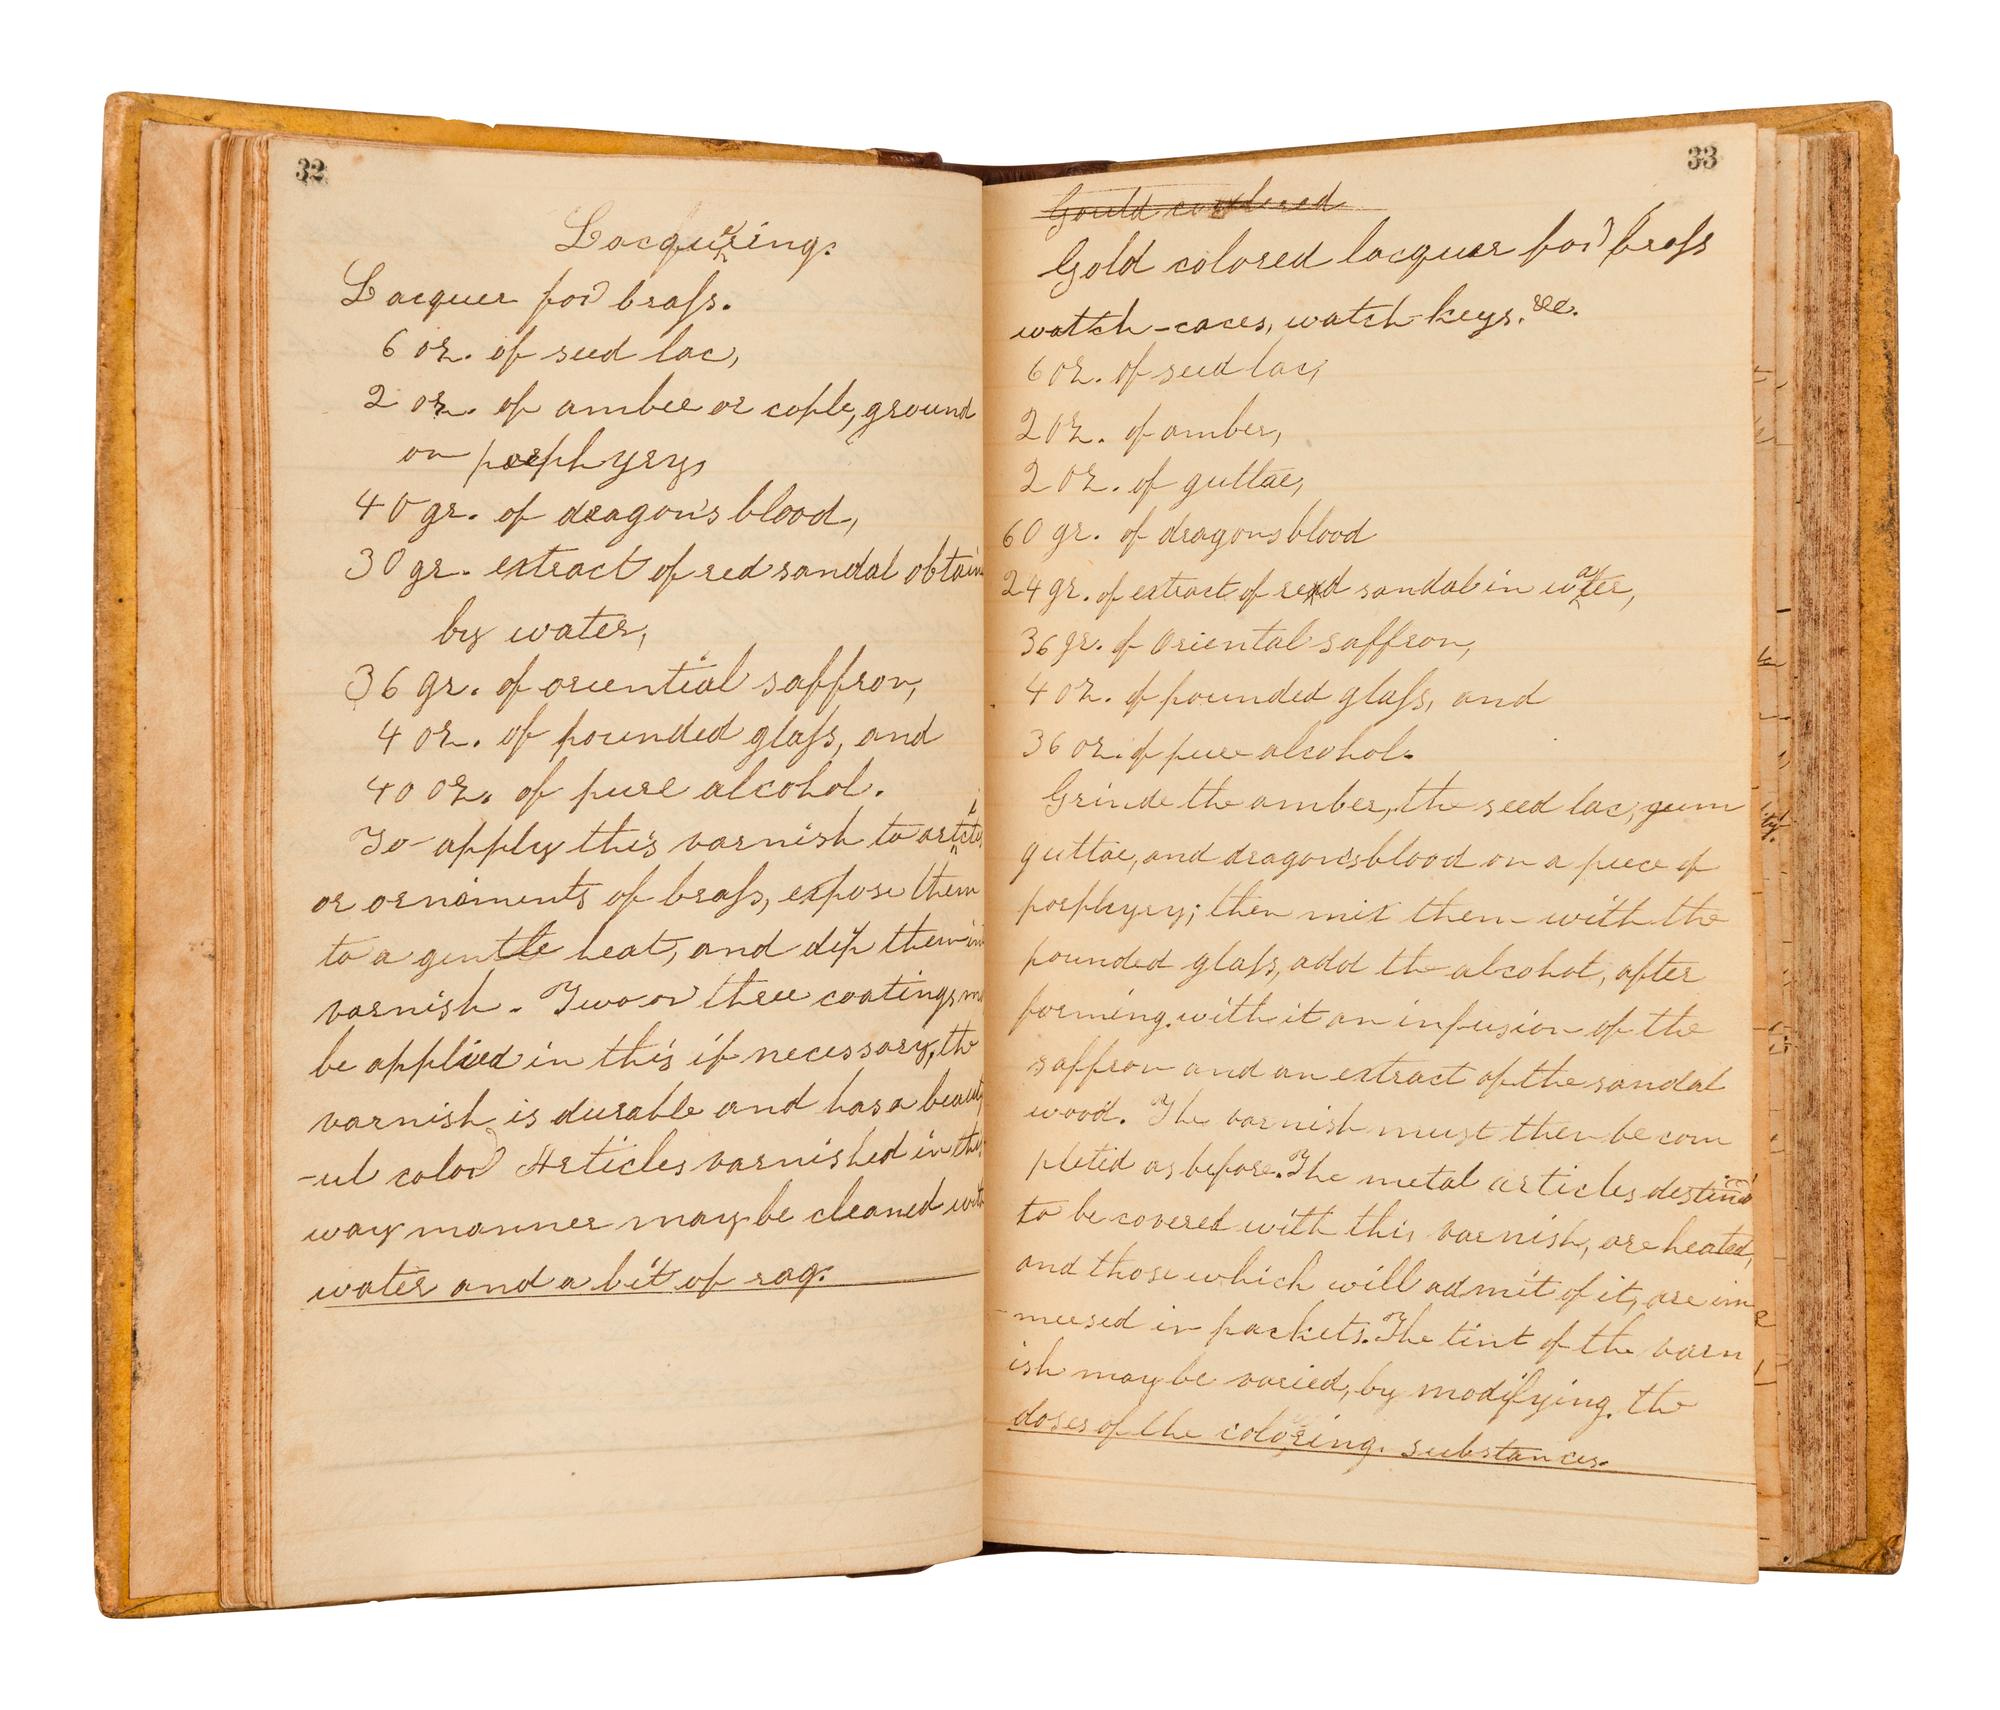 32
Lacquering.
Lacquer for brass.
6 oz. of seed lac,
2 oz. of amber or cople, ground
on porphyry,
40 gr. of dragon's blood,
30 gr. extract of red sandal obtain
by water,
36 gr. of oriential saffron,
4 oz. of pounded glass, and
40 oz. of pure alcohol.
To apply this varnish to articles
or ornaments of brass, expose them
to a gentle heat, and dip them in
varnish. Two or three coatings
be applied in this if necessary, the
varnish is durable and has a beauty
-ul color Articles varnished in this
way manner may be cleaned with
water and a bit of rag.
33
Gould
Gold colored lacquer for brass
watch-cases, watch-keys, &c.
6 oz. of seed lac,
2 oz. of amber,
2 oz. of guttae,
60 gr. of dragons blood
24 gr. of extract of red sandal in water,
36 gr. of Oriental saffron,
4 oz. of pounded glass, and
36 oz. of pure alcohol.
Grinde the amber, the seed lac, gum
guttae, and dragonsblood on a piece of
porphyry; then mix them with the
pounded glass, add the alcohol, after
forming with it an infusion of the
saffron and an extract of the sandal
wood. The varnish must then be com
pleted as before. The metal articles destined
to be covered with this varnish, are heated,
and those which will admit of it, are im
-mersed in packets. The tint of the varn
ish may be varied, by modifying the
doses of the coloring substances.